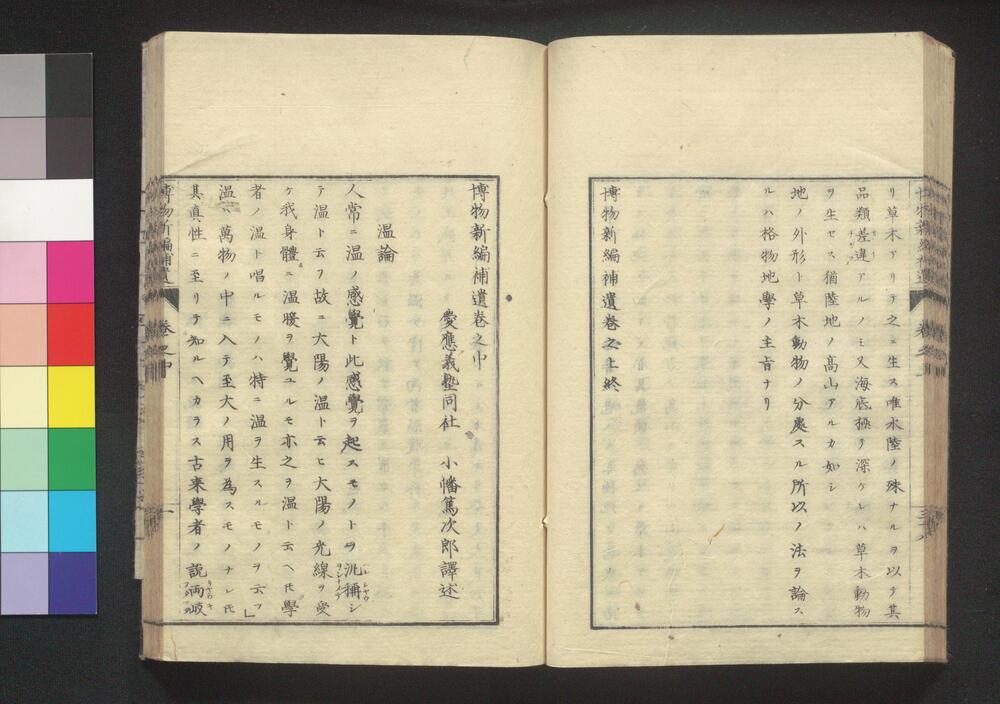 リ草木アリテ之ニ生ス唯水陸ノ殊ナルヲ以テ其
品類差違アルノミ又海底極テ深ケレハ草木動物
ヲ生セス猶陸地ノ高山アルカ如シ
地ノ外形ト草木動物ノ分處スル所以ノ法ヲ論ス
ルハ格物地學ノ主旨ナリ
博物新編補遺卷之上終
博物新編補遺卷之中
慶應義塾同社 小幡篤次郎譯述
溫論
人常ニ溫ノ感覺ト此感覺ヲ起スモノトヲ汎稱シ
テ溫ト云フ故ニ大陽ノ溫ト云ヒ大陽ノ光線ヲ受
ケ我身體ニ溫暖ヲ覺ユルモ亦之ヲ溫ト云ヘ𪜈學
者ノ溫ト唱ルモノハ特ニ溫ヲ生スルモノヲ云フ」
溫ハ萬物ノ中ニ入テ至大ノ用ヲ為スモノナレ𪜈
其真性ニ至リテ知ルヘカラス古來學者ノ說兩岐
博物新編補遺 卷之中 一